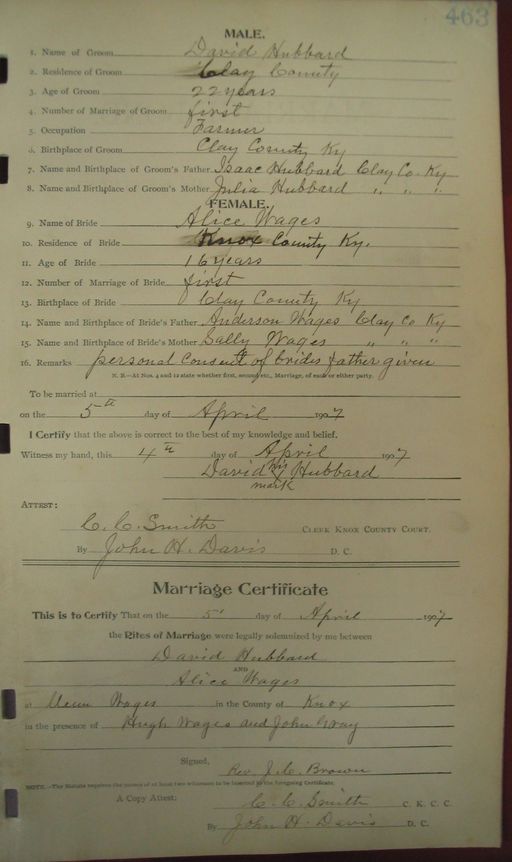 463
MALE.
1. Name of Groom David Hubbard
2. Residence of Groom Clay County
3. Age of Groom 22 years
4. Number of Marriage of Groom first
5. Occupation Farmer
6. Birthplace of Groom Clay County Ky
7. Name and Birthplace of Groom's Father Isaac Hubbard Clay Co. Ky
8. Name and Birthplace of Groom's Mother Julia Hubbard " " "
FEMALE.
9. Name of Bride Alice Wages
10. Residence of Bride Knox County Ky.
11. Age of Bride 16 years
12. Number of Marriage of Bride first
13. Birthplace of Bride Clay County Ky
14. Name and Birthplace of Bride's Father Anderson Wages Clay Co Ky
15. Name and Birthplace of Bride's Mother Sally Wages " " "
16. Remarks personal consent of brides father given
N. B.—At Nos. 4 and 12 state whether first, second, etc., Marriage, of each or either party.
To be married at
on the 5th day of April 1907
I Certify that the above is correct to the best of my knowledge and belief.
Witness my hand, this 4th day of April 1907
David his x Hubbard
mark
ATTEST:
C. C. Smith CLERK KNOX COUNTY COURT.
By John H. Davis D. C.
Marriage Certificate
This is to Certify That on the 5' day of April 1907
the Rites of Marriage were legally solemnized by me between
David Hubbard
AND
Alice Wages
at Wages in the County of Knox
in the presence of Hugh Wages and John Gray
Signed,
Rev J. C. Brown
NOTE.—The Statute requires the names of at least two witnesses to be inserted in the foregoing Certificate.
A Copy Attest: C. C. Smith C. K. C. C.
By John H. Davis D. C.